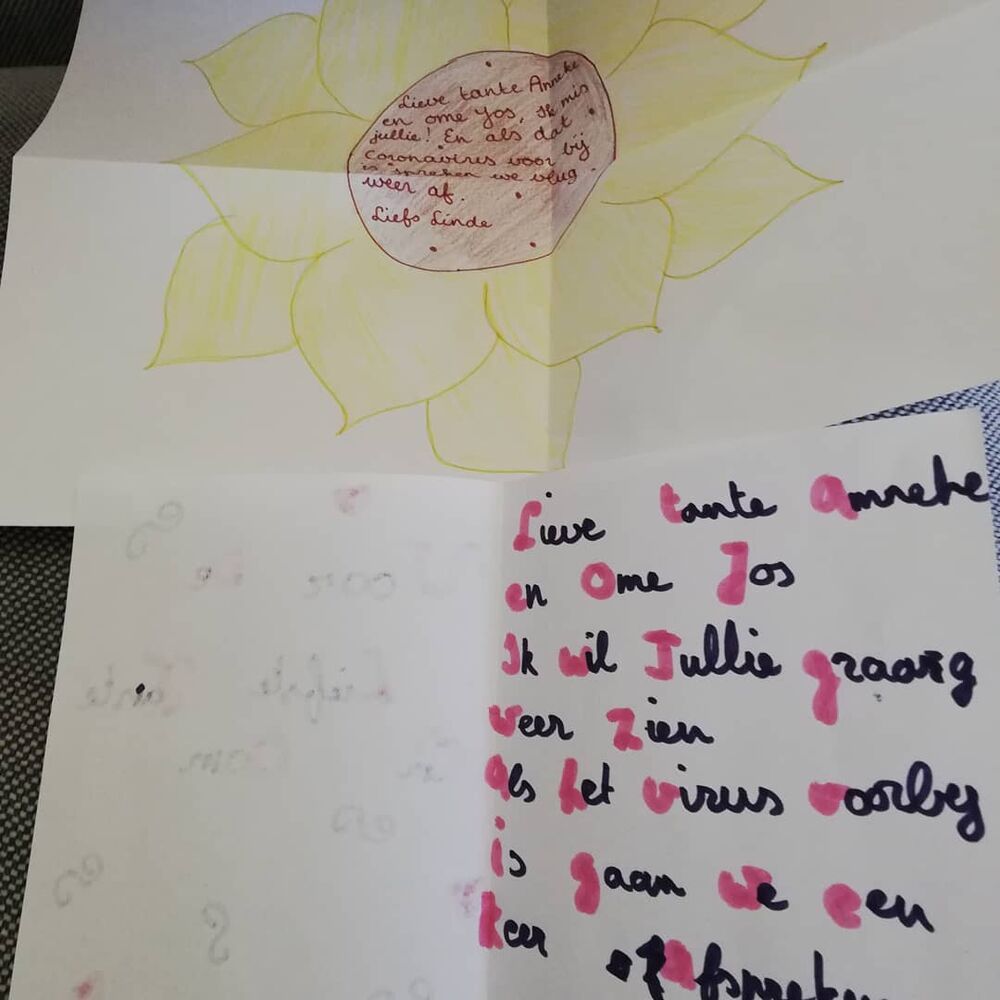 Lieve tante Anneke
en ome Jos, Ik mis
jullie! En als dat
coronavirus voor bij
is spreken we vlug
weer af.
Liefs Linde
Lieve tante Anneke
en Ome Jos
Ik wil Jullie graag
weer zien
Als het virus voorby
is gaan we een
keer Afspreken
Voor de
Liefste Tante
En Oom